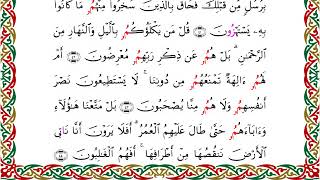 بِرُسُلٍ مِّن قَبْلِكَ فَحَاقَ بِالَّذِينَ سَخِرُوا۟ مِنْهُم مَّا كَانُوا۟
بِهِۦ يَسْتَهْزِءُونَ ﴿٤١﴾ قُلْ مَن يَكْلَؤُكُم بِالَّيْلِ وَالنَّهَارِ مِنَ
الرَّحْمَٰنِ ۗ بَلْ هُمْ عَن ذِكْرِ رَبِّهِم مُّعْرِضُونَ ﴿٤٢﴾ أَمْ
لَهُمْ ءَالِهَةٌ تَمْنَعُهُم مِّن دُونِنَا ۚ لَا يَسْتَطِيعُونَ نَصْرَ
أَنفُسِهِمْ وَلَا هُم مِّنَّا يُصْحَبُونَ ﴿٤٣﴾ بَلْ مَتَّعْنَا هَٰٓؤُلَآءِ
وَءَابَآءَهُمْ حَتَّىٰ طَالَ عَلَيْهِمُ الْعُمُرُ ۗ أَفَلَا يَرَوْنَ أَنَّا نَأْتِى
الْأَرْضَ نَنقُصُهَا مِنْ أَطْرَافِهَآ ۚ أَفَهُمُ الْغَٰلِبُونَ ﴿٤٤﴾